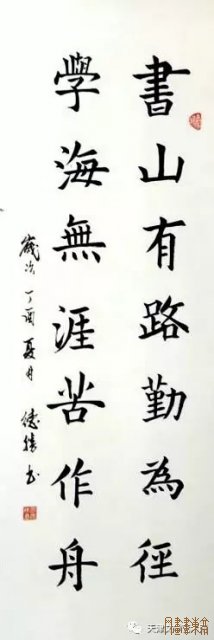 書山有路勤為徑
學海無涯苦作舟
歲次丁酉夏月 德勝書